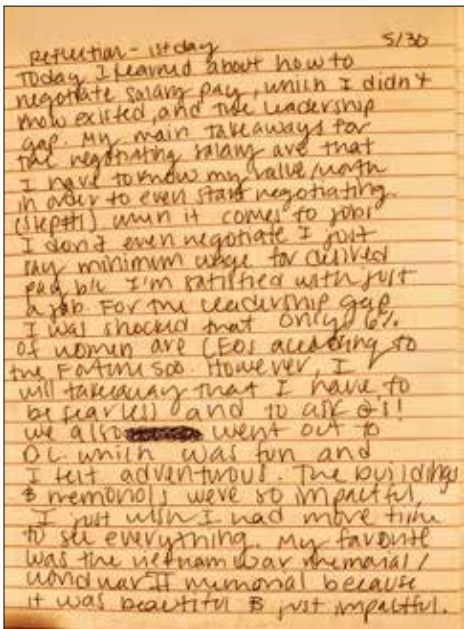 5/30
Reflection - 1st day
Today I learned about how to
negotiate salary pay, which I didn't
know existed, and the leadership
gap. My main takeaways for
the negotiating salary are that
I have to know my value/worth
in order to even start negotiating.
(step #1) when it comes to jobs
I don't even negotiate I just
say minimum wage for desired
pay b/c I'm satisfied with just
a job. For the leadership gap
I was shocked that only 6%
of women are CEOs according to
the Fortune 500. However, I
will takeaway that I have to
be fearless and to ask Q's!
we also went out to
D.C. which was fun and
I felt adventurous. The buildings
& memorials were so impactful,
I just wish I had more time
to see everything. My favorite
was the vietnam war memorial/
world war II memorial because
it was beautiful & just impactful.